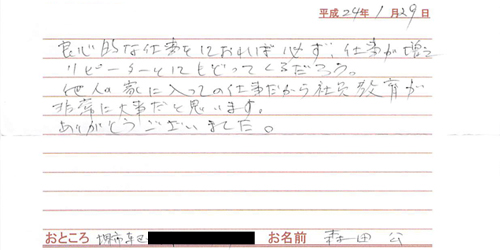 平成24年1月29日
良心的な仕事をしておれば必ず、仕事が増え
リピーターとしてもどってくるだろう。
他人の家に入っての仕事だから社員教育が
非常に大事だと思います。
ありがとうございました。
おところ 堺市東区 お名前 森田 公